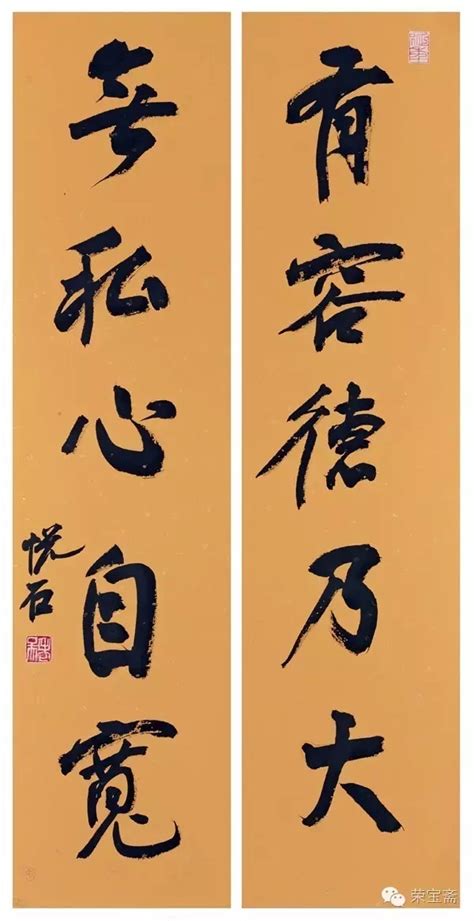 有容德乃大
無私心自寬
悦石
荣宝斋